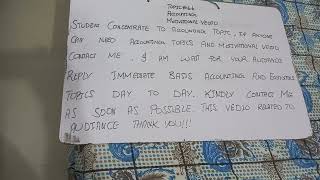 TOPIC:
ACCOUNTING
MOTIVATIONAL VEDIO
STUDENT CONCENTRATE TO ACCOUNTING TOPIC, IF ANYONE
CAN NEED ACCOUNTING TOPICS AND MOTIVATIONAL VEDIO
CONTACT ME. I AM WAIT FOR YOUR GUIDANCE
REPLY IMMEDIATE BASIS ACCOUNTING AND
TOPICS DAY TO DAY. KINDLY CONTACT ME
AS SOON AS POSSIBLE. THIS VEDIO RELATED TO
GUIDANCE THANK YOU!!!